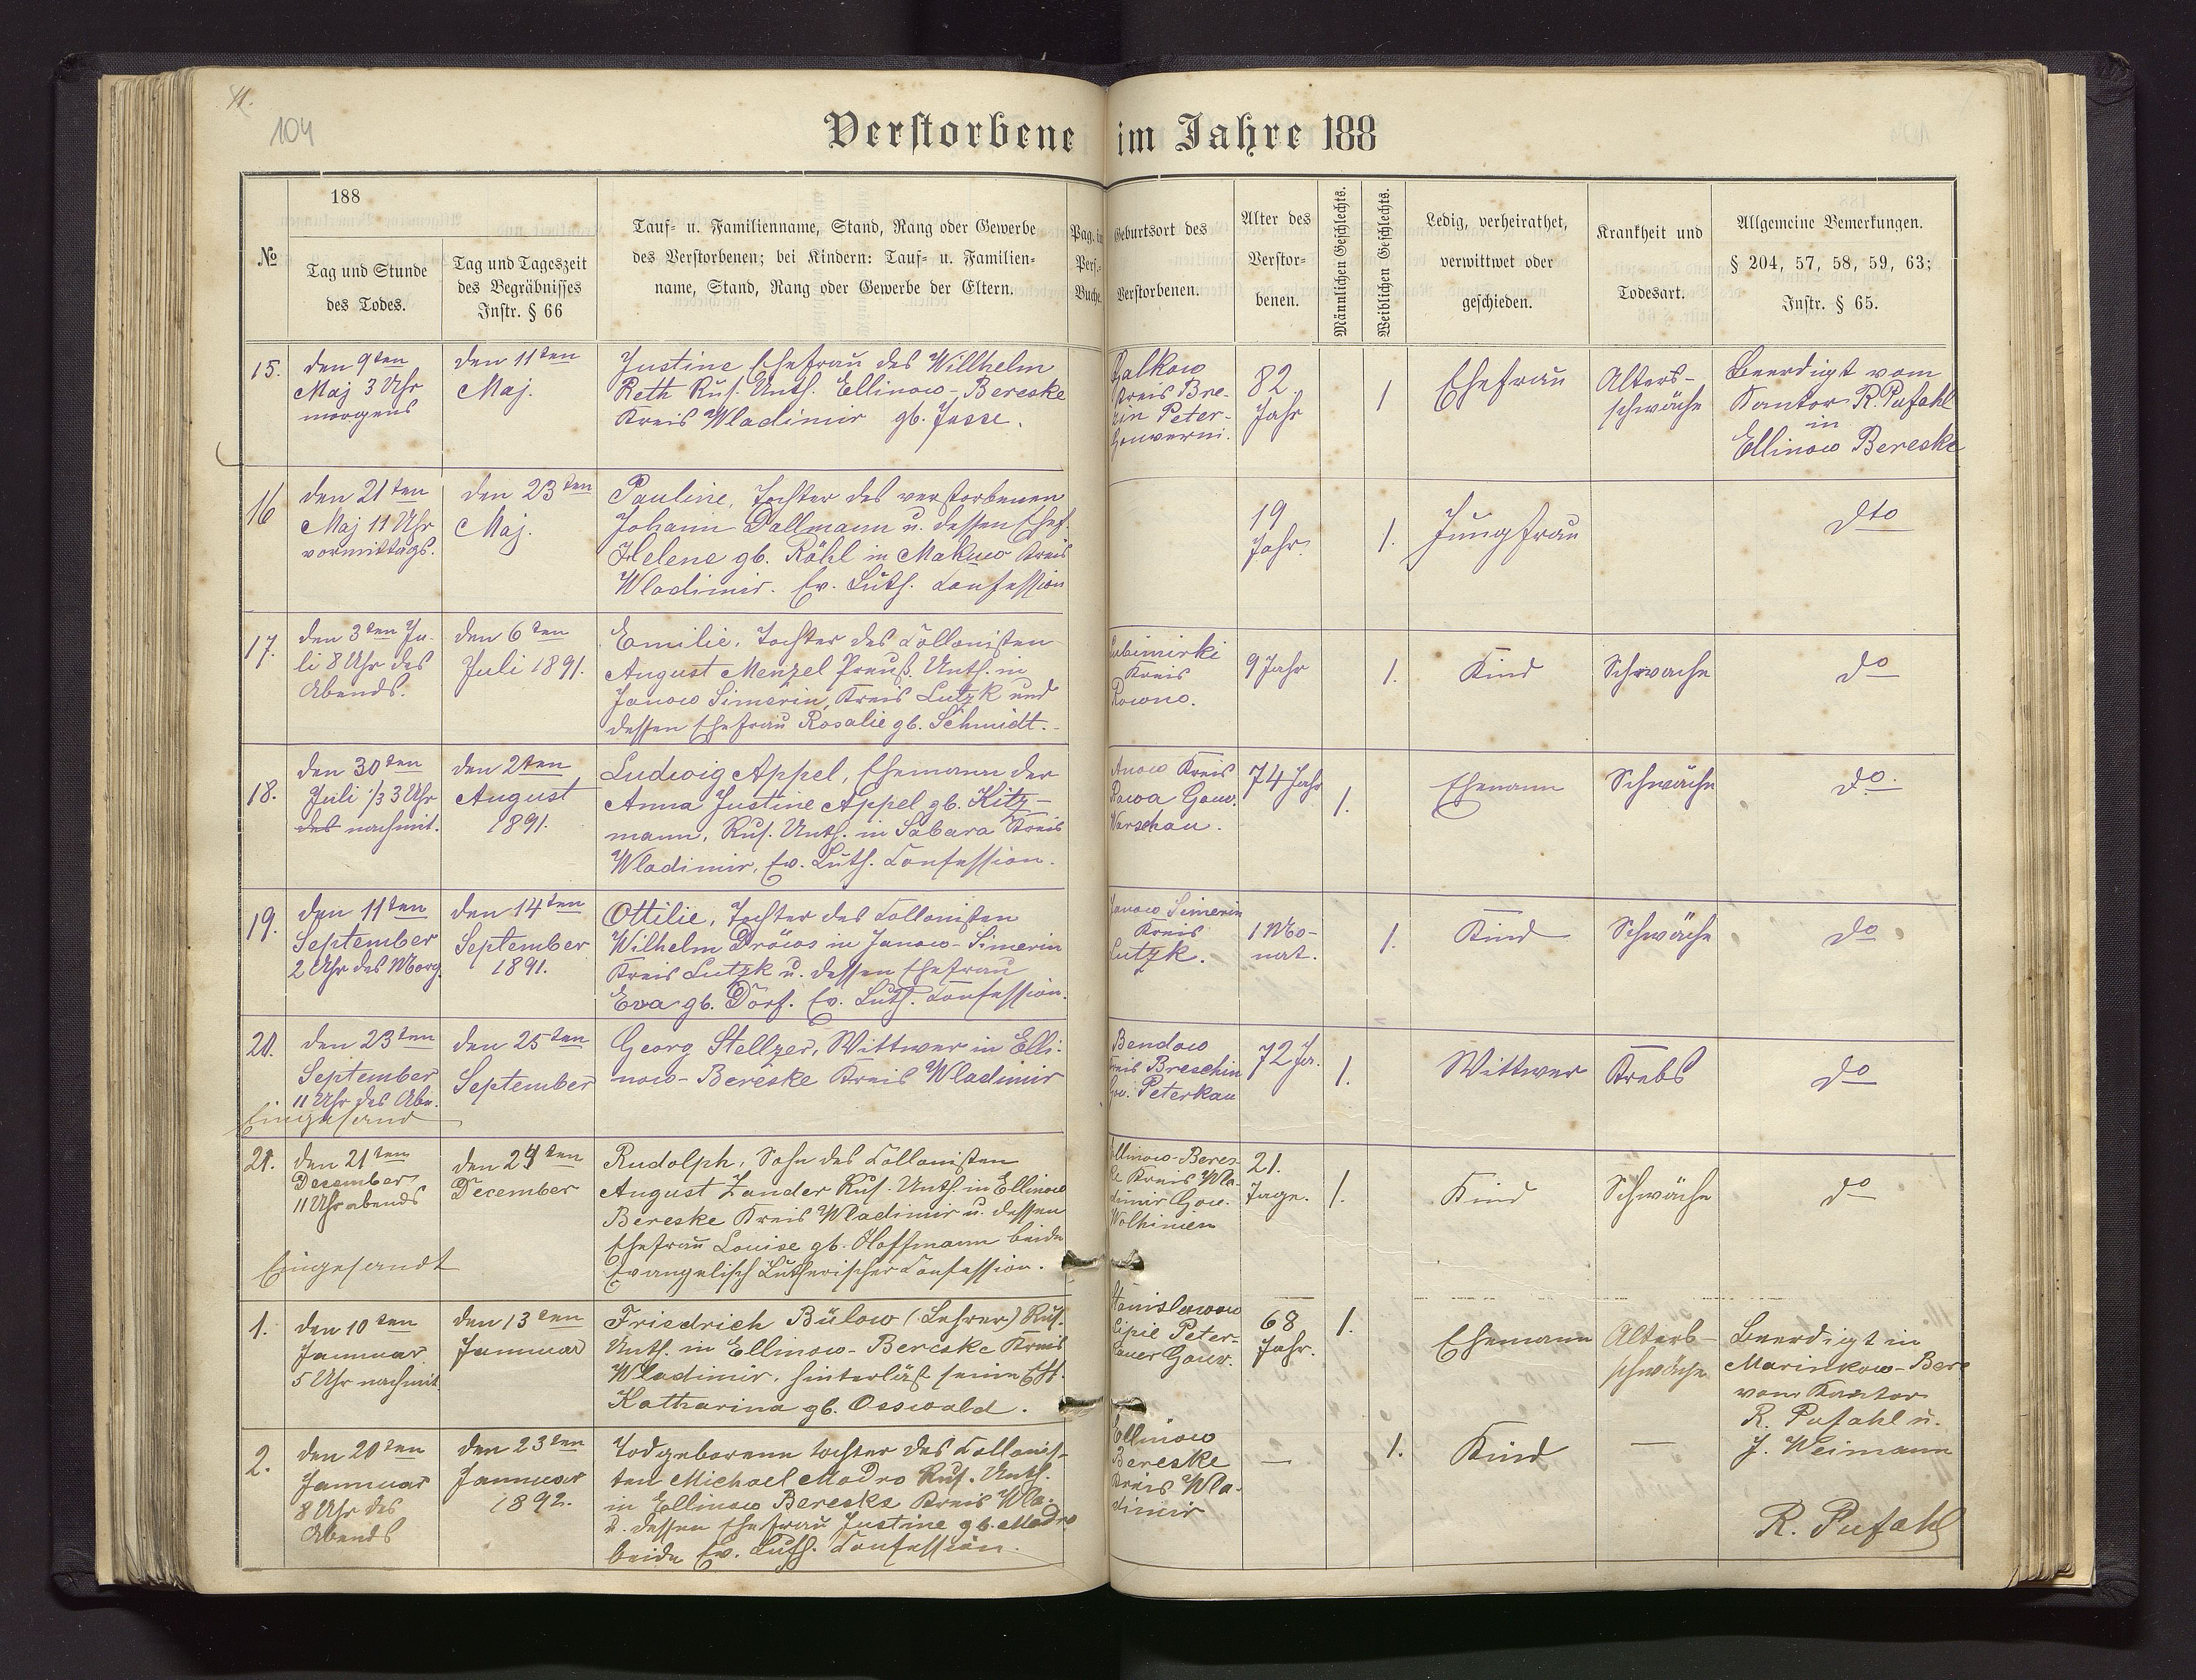 11.
104
Verstorbene im Jahre 188
№
188
Tag und Stunde
des Todes.
Tag und Tageszeit
des Begräbnisses
Instr. § 66
Tauf- u. Familienname, Stand, Rang oder Gewerbe
des Verstorbenen; bei Kindern: Tauf- u. Familien-
name, Stand, Rang oder Gewerbe der Eltern.
Pag. in
Pers.-
Buche.
Geburtsort des
Verstorbenen.
Alter des
Verstor-
benen.
Männlichen Geschlechts.
Weiblichen Geschlechts.
Ledig, verheirathet,
verwittwet oder
geschieden.
Krankheit und
Todesart.
Allgemeine Bemerkungen.
§ 204, 57, 58, 59, 63;
Instr. § 65.
15.
den 9ten
Maj 3 Uhr
morgens
den 11ten
Maj.
Justine Ehefrau des Willhelm
Reth Rus. Unth. Ellinow-Bereske
Kreis Wladimir gb. Jesse.
Galkow
Kreis Bre-
zin Peter-
Gouverni.
82
Jahr
1
Ehefrau
Alters-
schwäche
Beerdigt vom
Kantor R. Pufahl
in
Ellinow Bereske
16
den 21ten
Maj 11 Uhr
vormittags.
den 23ten
Maj.
Pauline, Tochter des verstorbenen
Johann Dallmann u. dessen Ehef.
Helene gb. Röhl in Makuw Kreis
Wladimir. Ev. Luth. Confession
19
Jahr.
1.
Jungfrau
dto
17.
den 3ten Ju-
li 8 Uhr des
Abends.
den 6ten
Juli 1891.
Emilie, Tochter des Collonisten
August Menzel Preuß. Unth. in
Janow Simerin, Kreis Lutzk und
dessen Ehefrau Rosalie gb. Schmidt.
Lubimirki
Kreis
Rowno.
9 Jahr
1.
Kind
Schwache
do
18.
den 30ten
Juli 1/3 3 Uhr
des nachmit.
den 2ten
August
1891.
Ludwig Appel, Ehemann der
Anna Justine Appel gb. Kitz-
mann, Rus. Unth. in Sabara Kreis
Wladimir, Ev. Luth. Confession.
Kreis
Rawa Gouv.
Warschau.
74 Jahr
1.
Ehemann
Schwäche
do.
19.
den 11ten
September
2 Uhr des Morg.
den 14ten
September
1891.
Ottilie, Tochter des Collonisten
Wilhelm Dröws in Janow-Simerin
Kreis Lutzk u. dessen Ehefrau
Eva gb. Dorf. Ev. Luth. Confession.
Janow Simerin
Kreis
Lutzk.
1 Mo-
nat.
1.
Kind
Schwäche
do
20.
den 23ten
September
11 Uhr des Abn.
Eingesand
den 25ten
September
Georg Stellzer, Wittwer in Elli-
now-Bereske Kreis Wladimir
Bendow
Kreis Breschin
Gou. Peterkau
72 Ja.
1.
Wittwer
Krebs
do
21.
den 21ten
December
11 Uhr abends
Eingesandt
den 24ten
December
Rudolph, Sohn des Collonisten
August Zander Rus. Unth. in Ellinow
Bereske Kreis Wladimir u. dessen
Ehefrau Louise gb. Hoffmann beide
Evangelisch Lutherischer Confession.
Ellinow-Beres-
ke Kreis Wla-
dimir Gou.
Wolhinien
21.
Tage.
1.
Kind
Schwäche
do
1.
den 10ten
Jannuar
5 Uhr nachmit
den 13ten
Jannuar
Friedrich Bülow (Lehrer) Rus.
Unth. in Ellinow-Bereske Kreis
Wladimir, hinterläst seine Ehf.
Katharina gb. Osswald.
Stanislawow
Peter-
kauer Gouv.
68
Jahr.
1.
Ehemann
Alters-
schwäche
Beerdigt in
Marinkow-Bere
vom Kantor
R. Pufahl u.
J. Weimann
2.
den 20ten
Jannuar
8 Uhr des
Abends
den 23ten
Jannuar
1892.
Todgeborenne tochter des Collonis-
ten Michael Modro Rus. Unth.
in Ellinow Bereske Kreis Wla.
u. dessen Ehefrau Justine gb. Modro
beide Ev. Luth. Confession.
Ellinow
Bereske
Kreis Wla-
dimir
—
1.
Kind
—
R. Pufahl